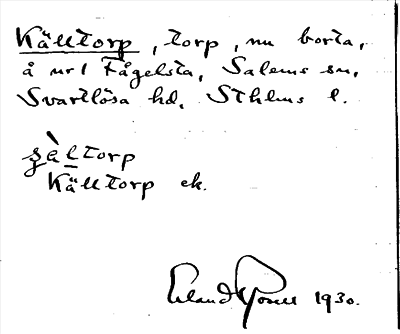 Källtorp, torp, nu borta,
å nr 1 Fågelsta, Salems sn,
Svartlösa hd, Sthlms l.
Källtorp ek.
Erland 1930.